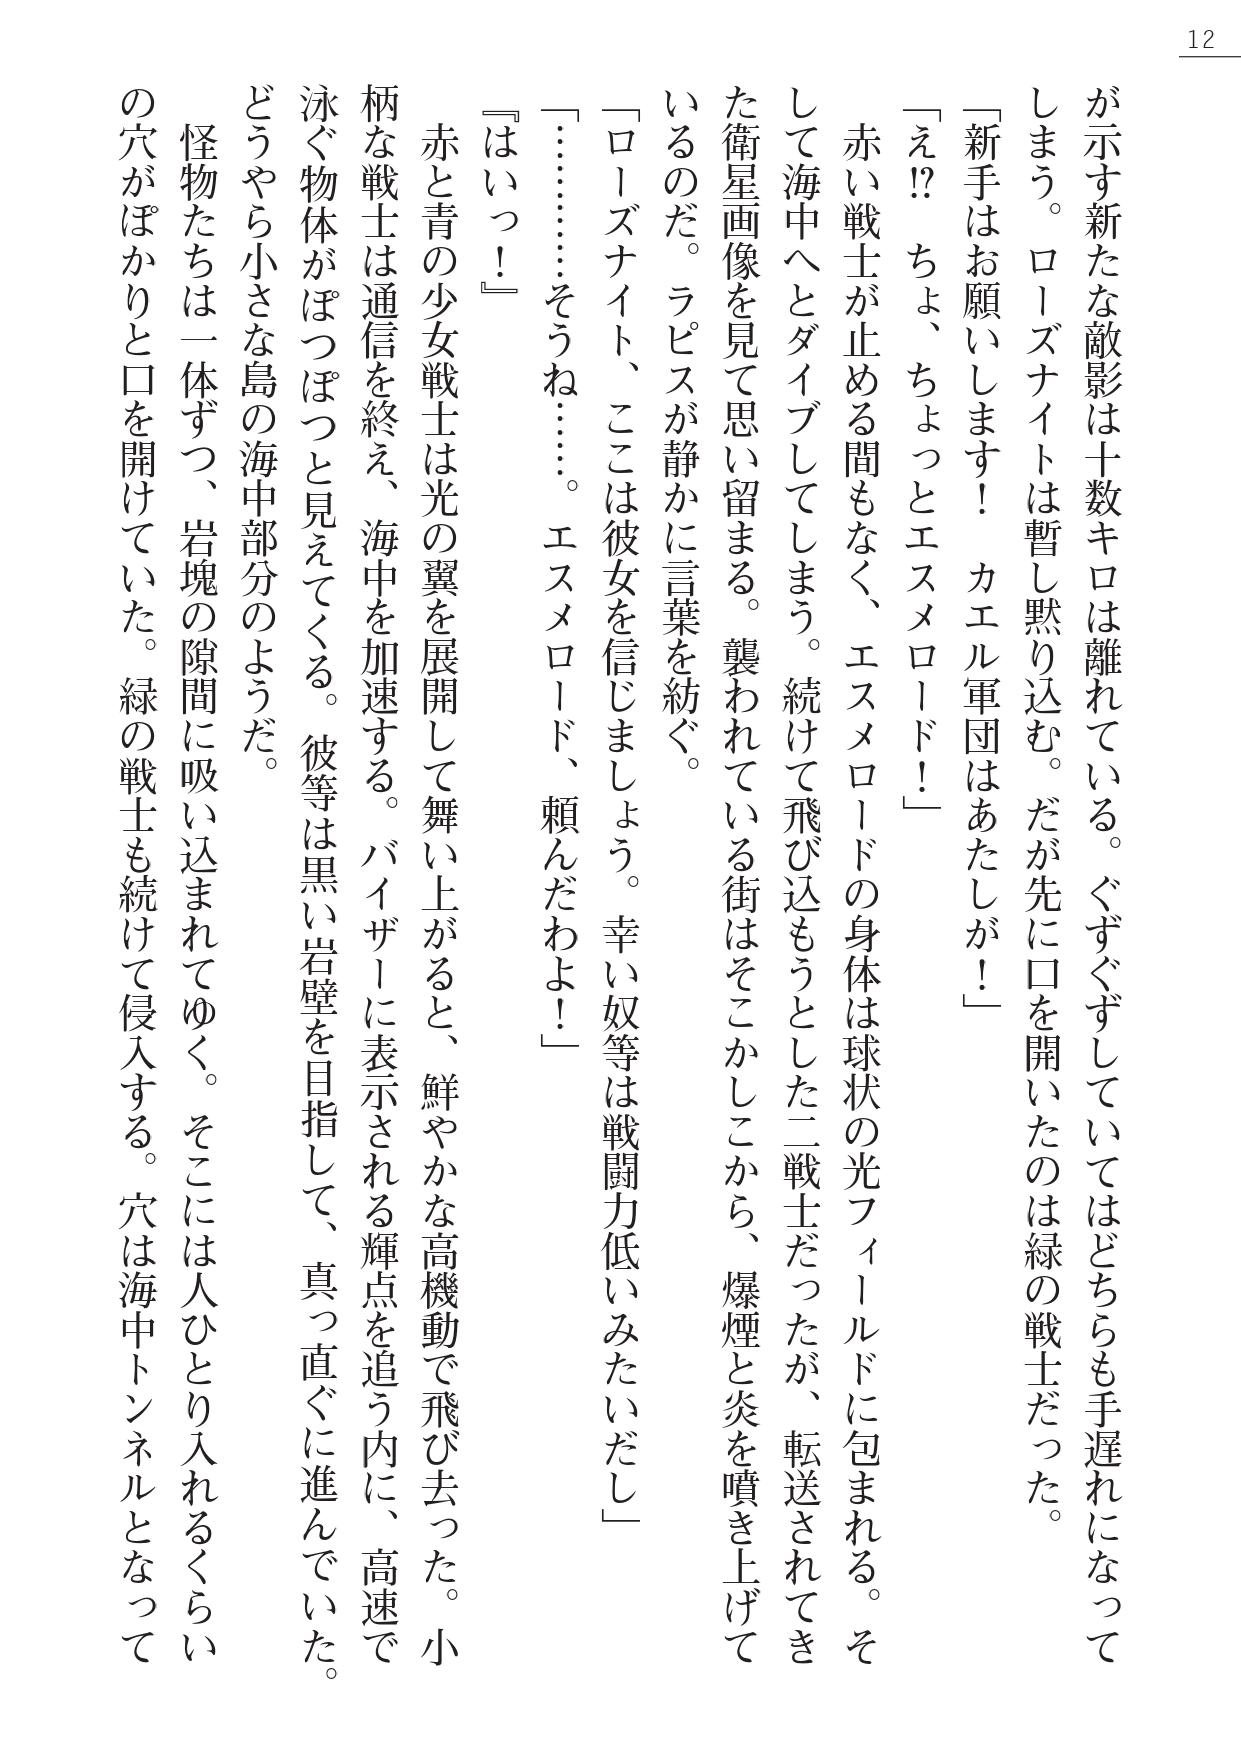 12
が示す新たな敵影は十数キロは離れている。ぐずぐずしていてはどちらも手遅れになって
しまう。ローズナイトは暫し黙り込む。だが先に口を開いたのは緑の戦士だった。
「新手はお願いします！　カエル軍団はあたしが！」
「え⁉　ちょ、ちょっとエスメロード！」
　赤い戦士が止める間もなく、エスメロードの身体は球状の光フィールドに包まれる。そ
して海中へとダイブしてしまう。続けて飛び込もうとした二戦士だったが、転送されてき
た衛星画像を見て思い留まる。襲われている街はそこかしこから、爆煙と炎を噴き上げて
いるのだ。ラピスが静かに言葉を紡ぐ。
「ローズナイト、ここは彼女を信じましょう。幸い奴等は戦闘力低いみたいだし」
「…………そうね……。エスメロード、頼んだわよ！」
『はいっ！』
　赤と青の少女戦士は光の翼を展開して舞い上がると、鮮やかな高機動で飛び去った。小
柄な戦士は通信を終え、海中を加速する。バイザーに表示される輝点を追う内に、高速で
泳ぐ物体がぽつぽつと見えてくる。彼等は黒い岩壁を目指して、真っ直ぐに進んでいた。
どうやら小さな島の海中部分のようだ。
　怪物たちは一体ずつ、岩塊の隙間に吸い込まれてゆく。そこには人ひとり入れるくらい
の穴がぽかりと口を開けていた。緑の戦士も続けて侵入する。穴は海中トンネルとなって